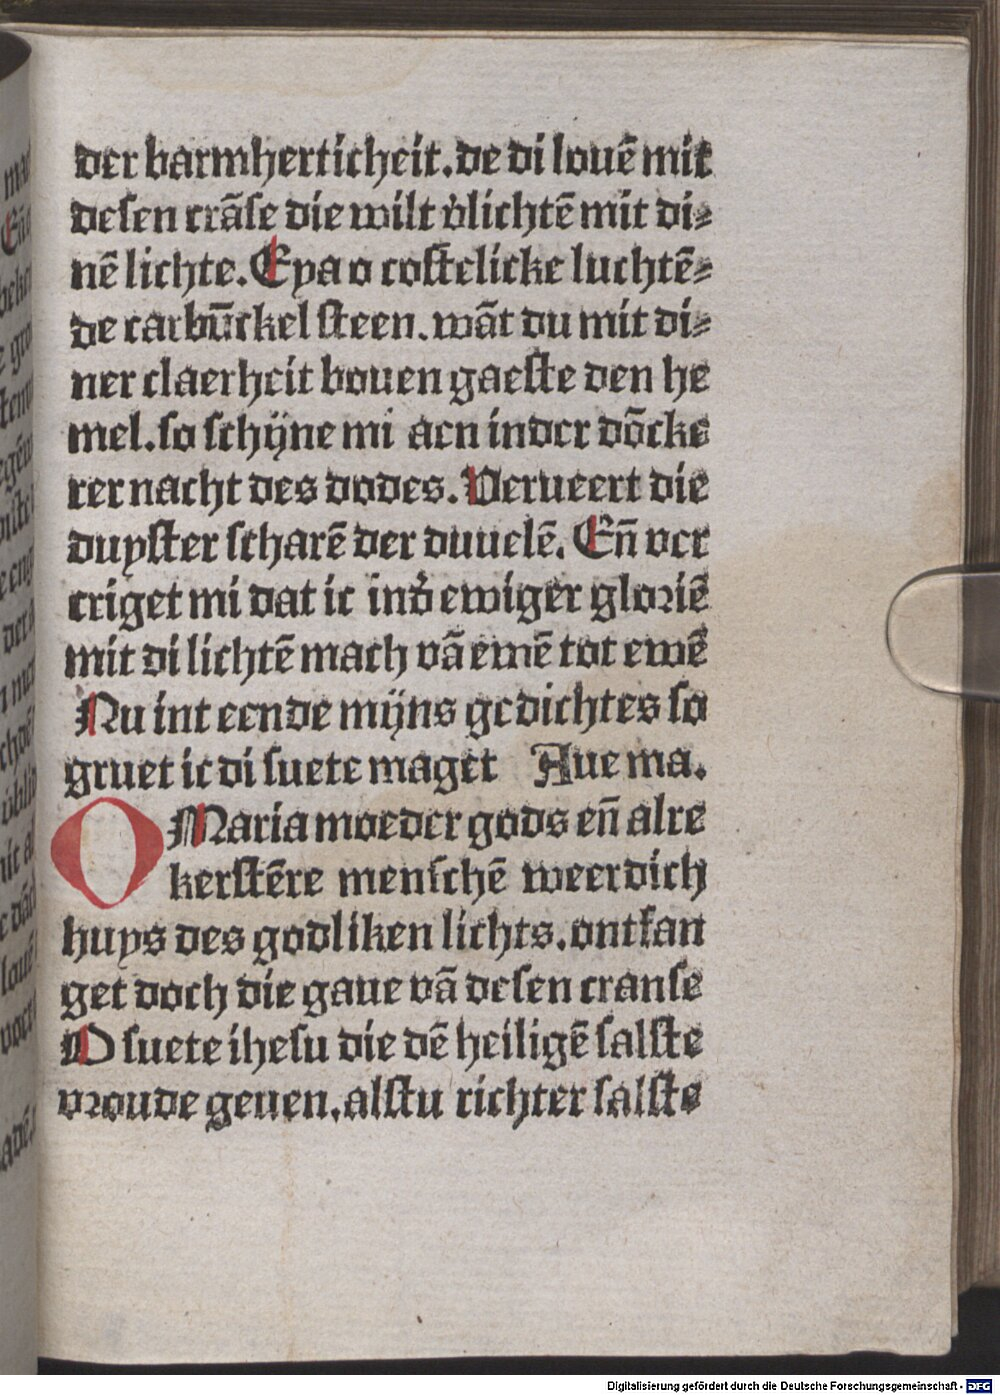 der barmherticheit. de di louē mit
desen crāse die wilt v̄lichtē mit di⸗
nē lichte. Eya o costelicke luchtē⸗
de carbūckel steen. wāt du mit di⸗
ner claerheit bouen gaeste den he
mel. so schijne mi aen in der dōcke
rer nacht des dodes. Verueert die
duyster scharē der duuelē. Eñ ver
criget mi dat ic in d̄ ewiger gloriē
mit di lichtē mach vā ewē tot ewē
Nu int eende mijns gedichtes so
gruet ic di suete maget Aue ma.
O MAria moeder gods eñ alre
kerstēre menschē weerdich
huys des godliken lichts. ontfan
get doch die gaue vā desen cranse
O suete ihesu die dē heiligē salste
vroude geuen. alstu richter salste
Digitalisierung gefördert durch die Deutsche Forschungsgemeinschaft - DFG